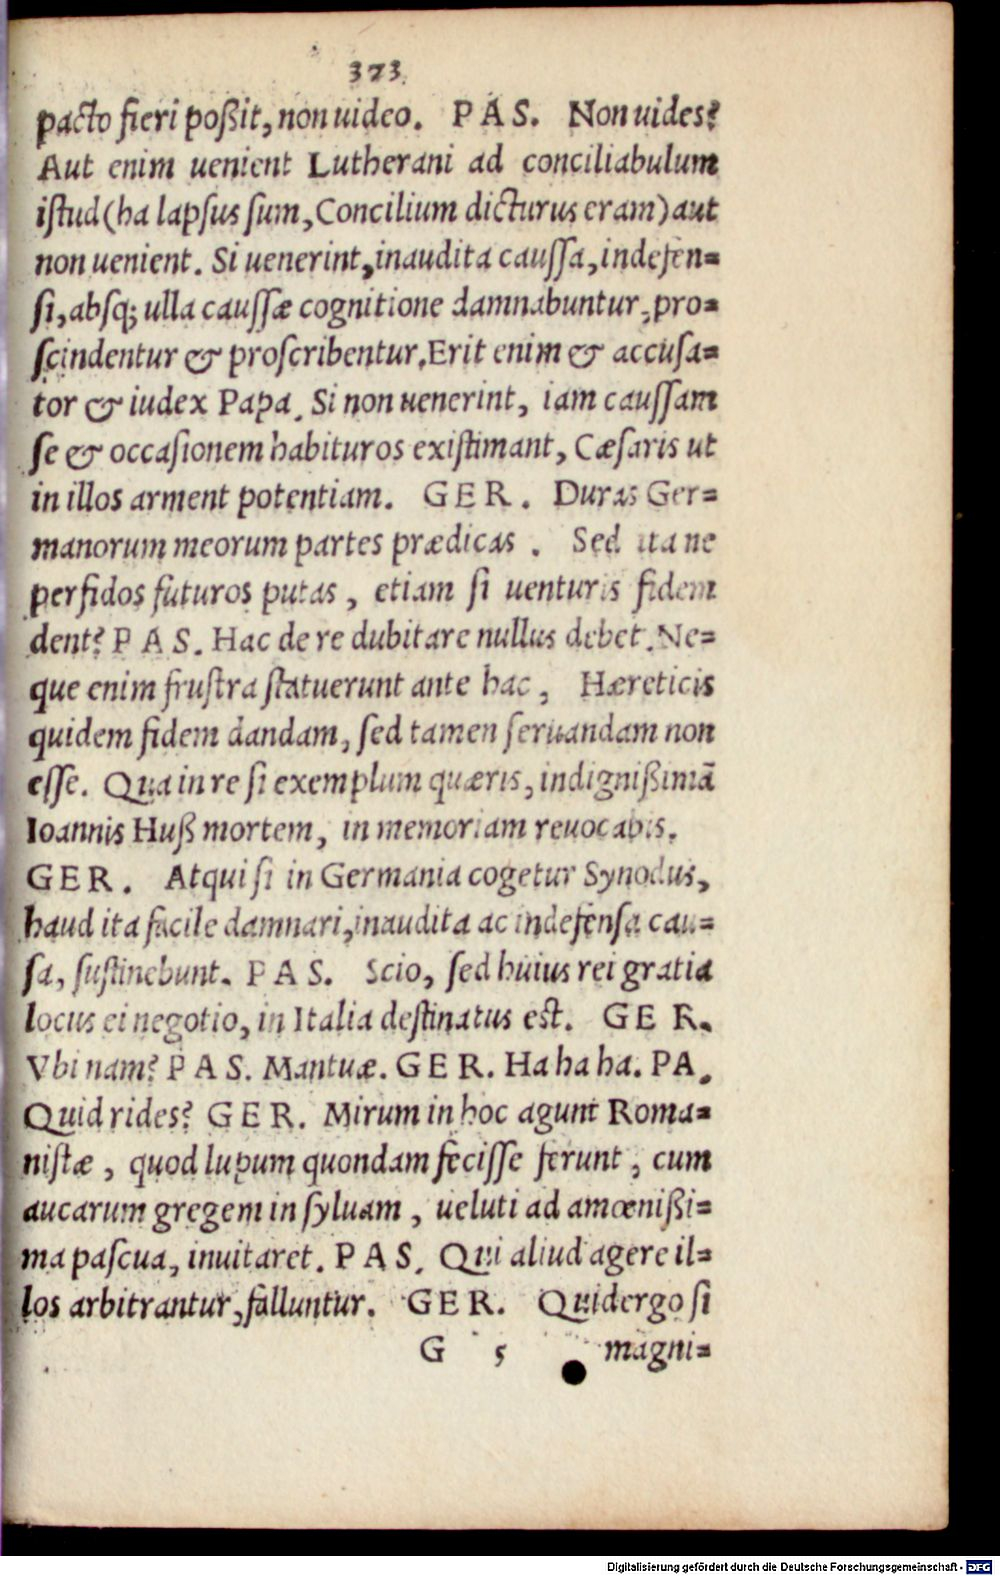 373
pacto fieri poßit, non uideo. PAS. Non uides?
Aut enim uenient Lutherani ad conciliabulum
iſtud (ha lapſus ſum, Concilium dicturus eram) aut
non uenient. Si uenerint, inaudita cauſſa, indefen=
ſi, abſq; ulla cauſſæ cognitione damnabuntur, pro=
ſcindentur & proſcribentur. Erit enim & accuſa=
tor & iudex Papa. Si non uenerint, iam cauſſam
ſe & occaſionem habituros exiſtimant, Cæſaris ut
in illos arment potentiam. GER. Duras Ger=
manorum meorum partes prædicas. Sed ita ne
perfidos futuros putas, etiam ſi uenturis fidem
dent? PAS. Hac de re dubitare nullus debet. Ne=
que enim fruſtra ſtatuerunt ante hac, Hæreticis
quidem fidem dandam, ſed tamen ſeruandam non
eſſe. Qua in re ſi exemplum quæris, indignißimā
Ioannis Huß mortem, in memoriam reuocabis.
GER. Atqui ſi in Germania cogetur Synodus,
haud ita facile damnari, inaudita ac indefenſa cau=
ſa, ſuſtinebunt. PAS. Scio, ſed huius rei gratia
locus ei negotio, in Italia deſtinatus eſt. GER.
Vbi nam? PAS. Mantuæ. GER. Ha ha ha. PA.
Quid rides? GER. Mirum in hoc agunt Roma=
niſtæ, quod lupum quondam feciſſe ferunt, cum
aucarum gregem in ſyluam, ueluti ad amœnißi=
ma paſcua, inuitaret. PAS. Qui aliud agere il=
los arbitrantur, falluntur. GER. Quid ergo ſi
G 5 magni=
Digitalisierung gefördert durch die Deutsche Forschungsgemeinschaft - DFG